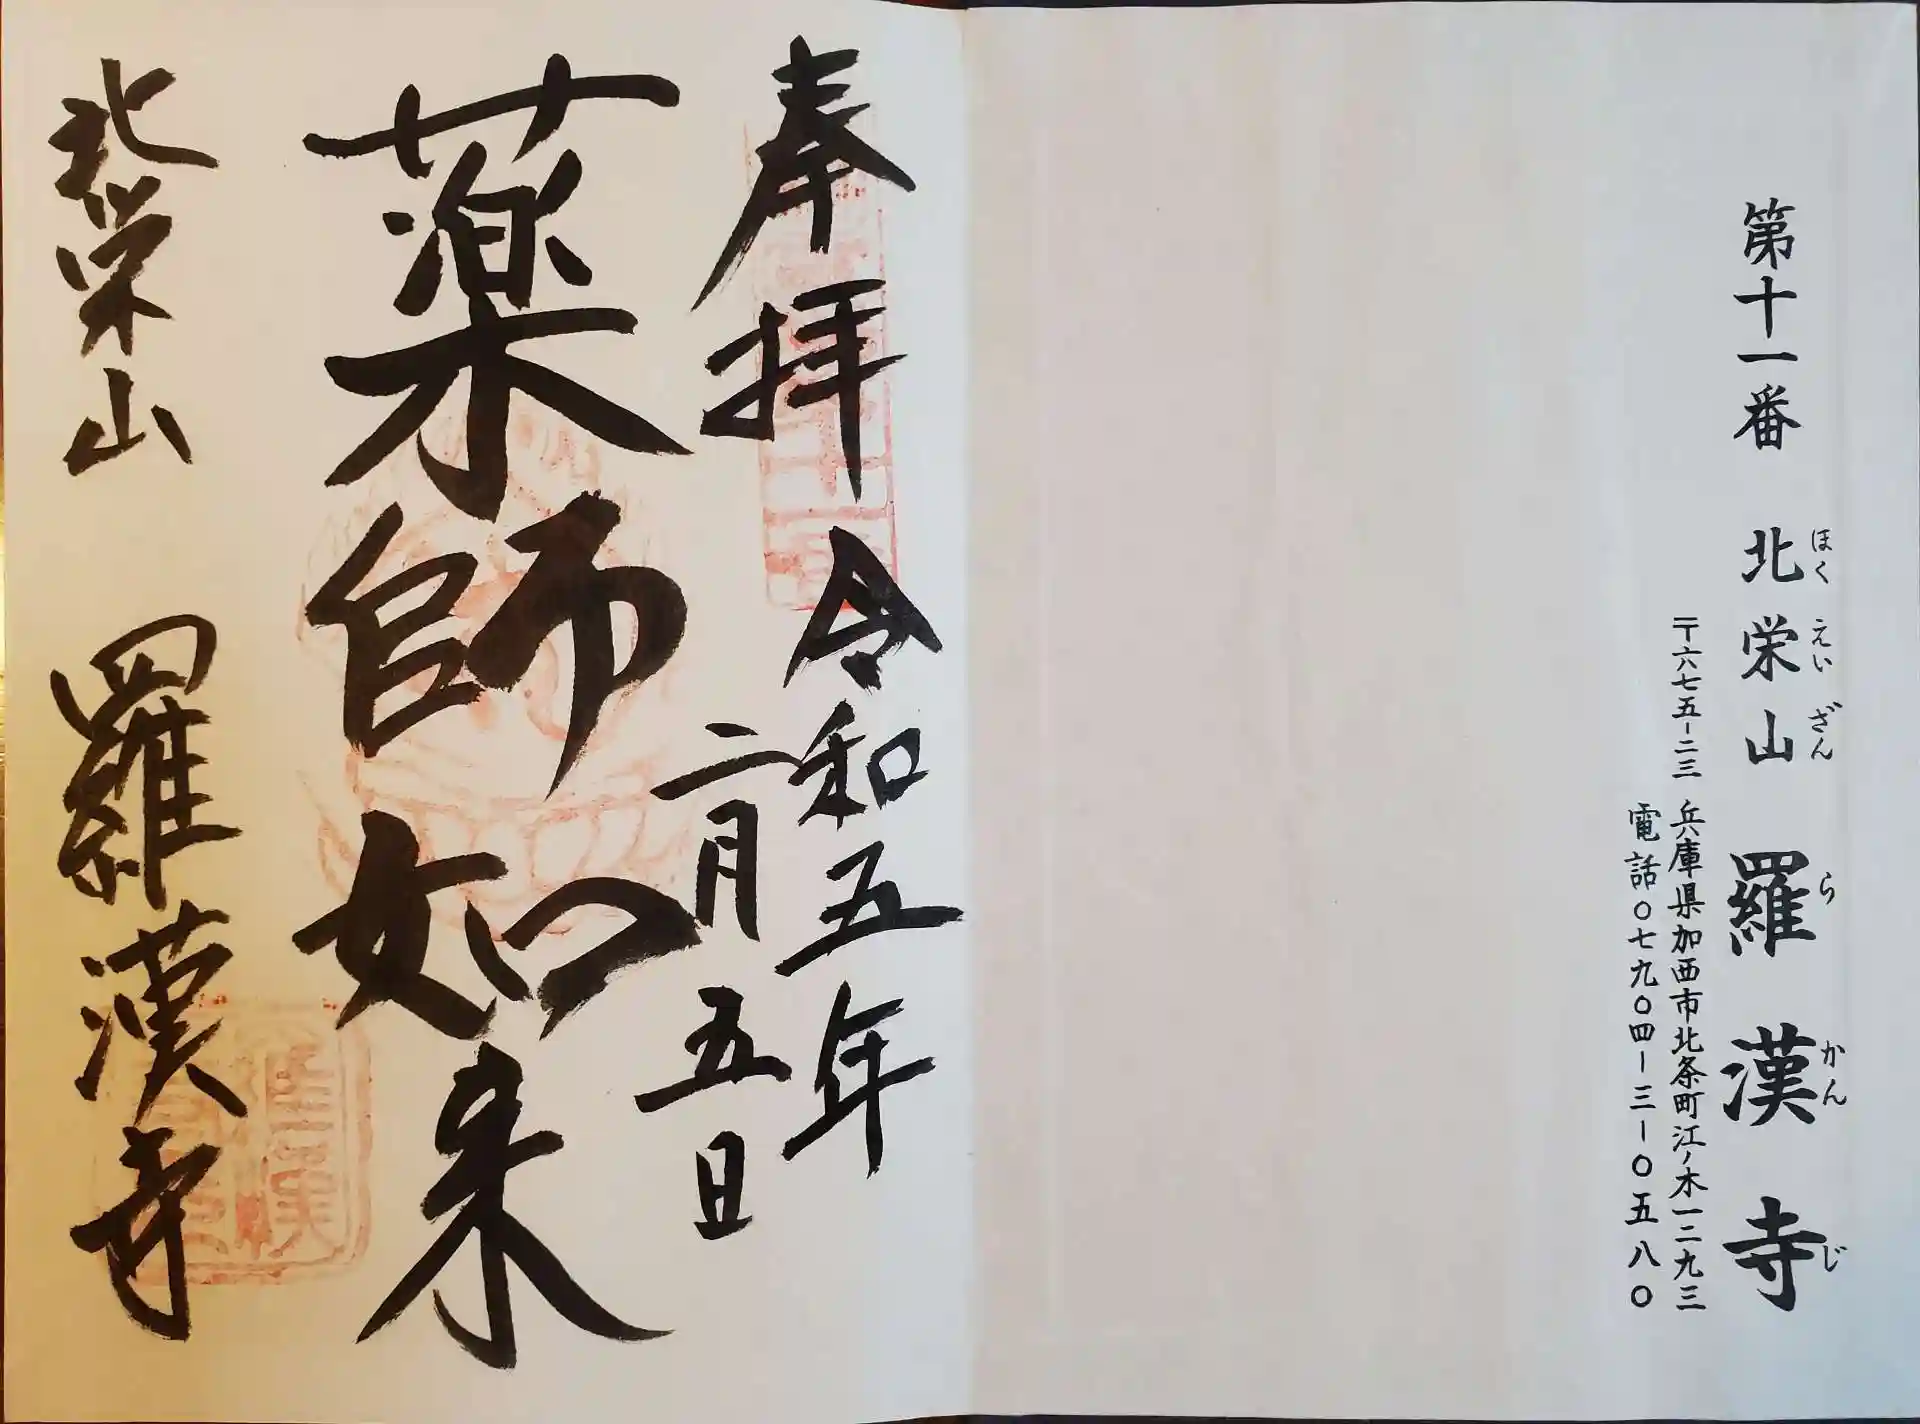 第十一番 北栄山 羅漢寺
ほく えい ざん ら かん じ
〒六七五-二三 兵庫県加西市北条町江ノ木一二九三
電話〇七九〇四-三-〇五八〇
奉拝 令和五年
二月五日
薬師如来
北栄山 羅漢寺